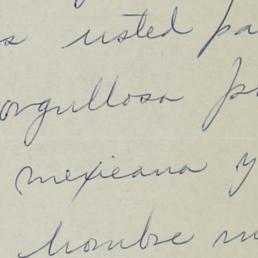 s usted pa
orgullosa p
mexicana y
hombre m